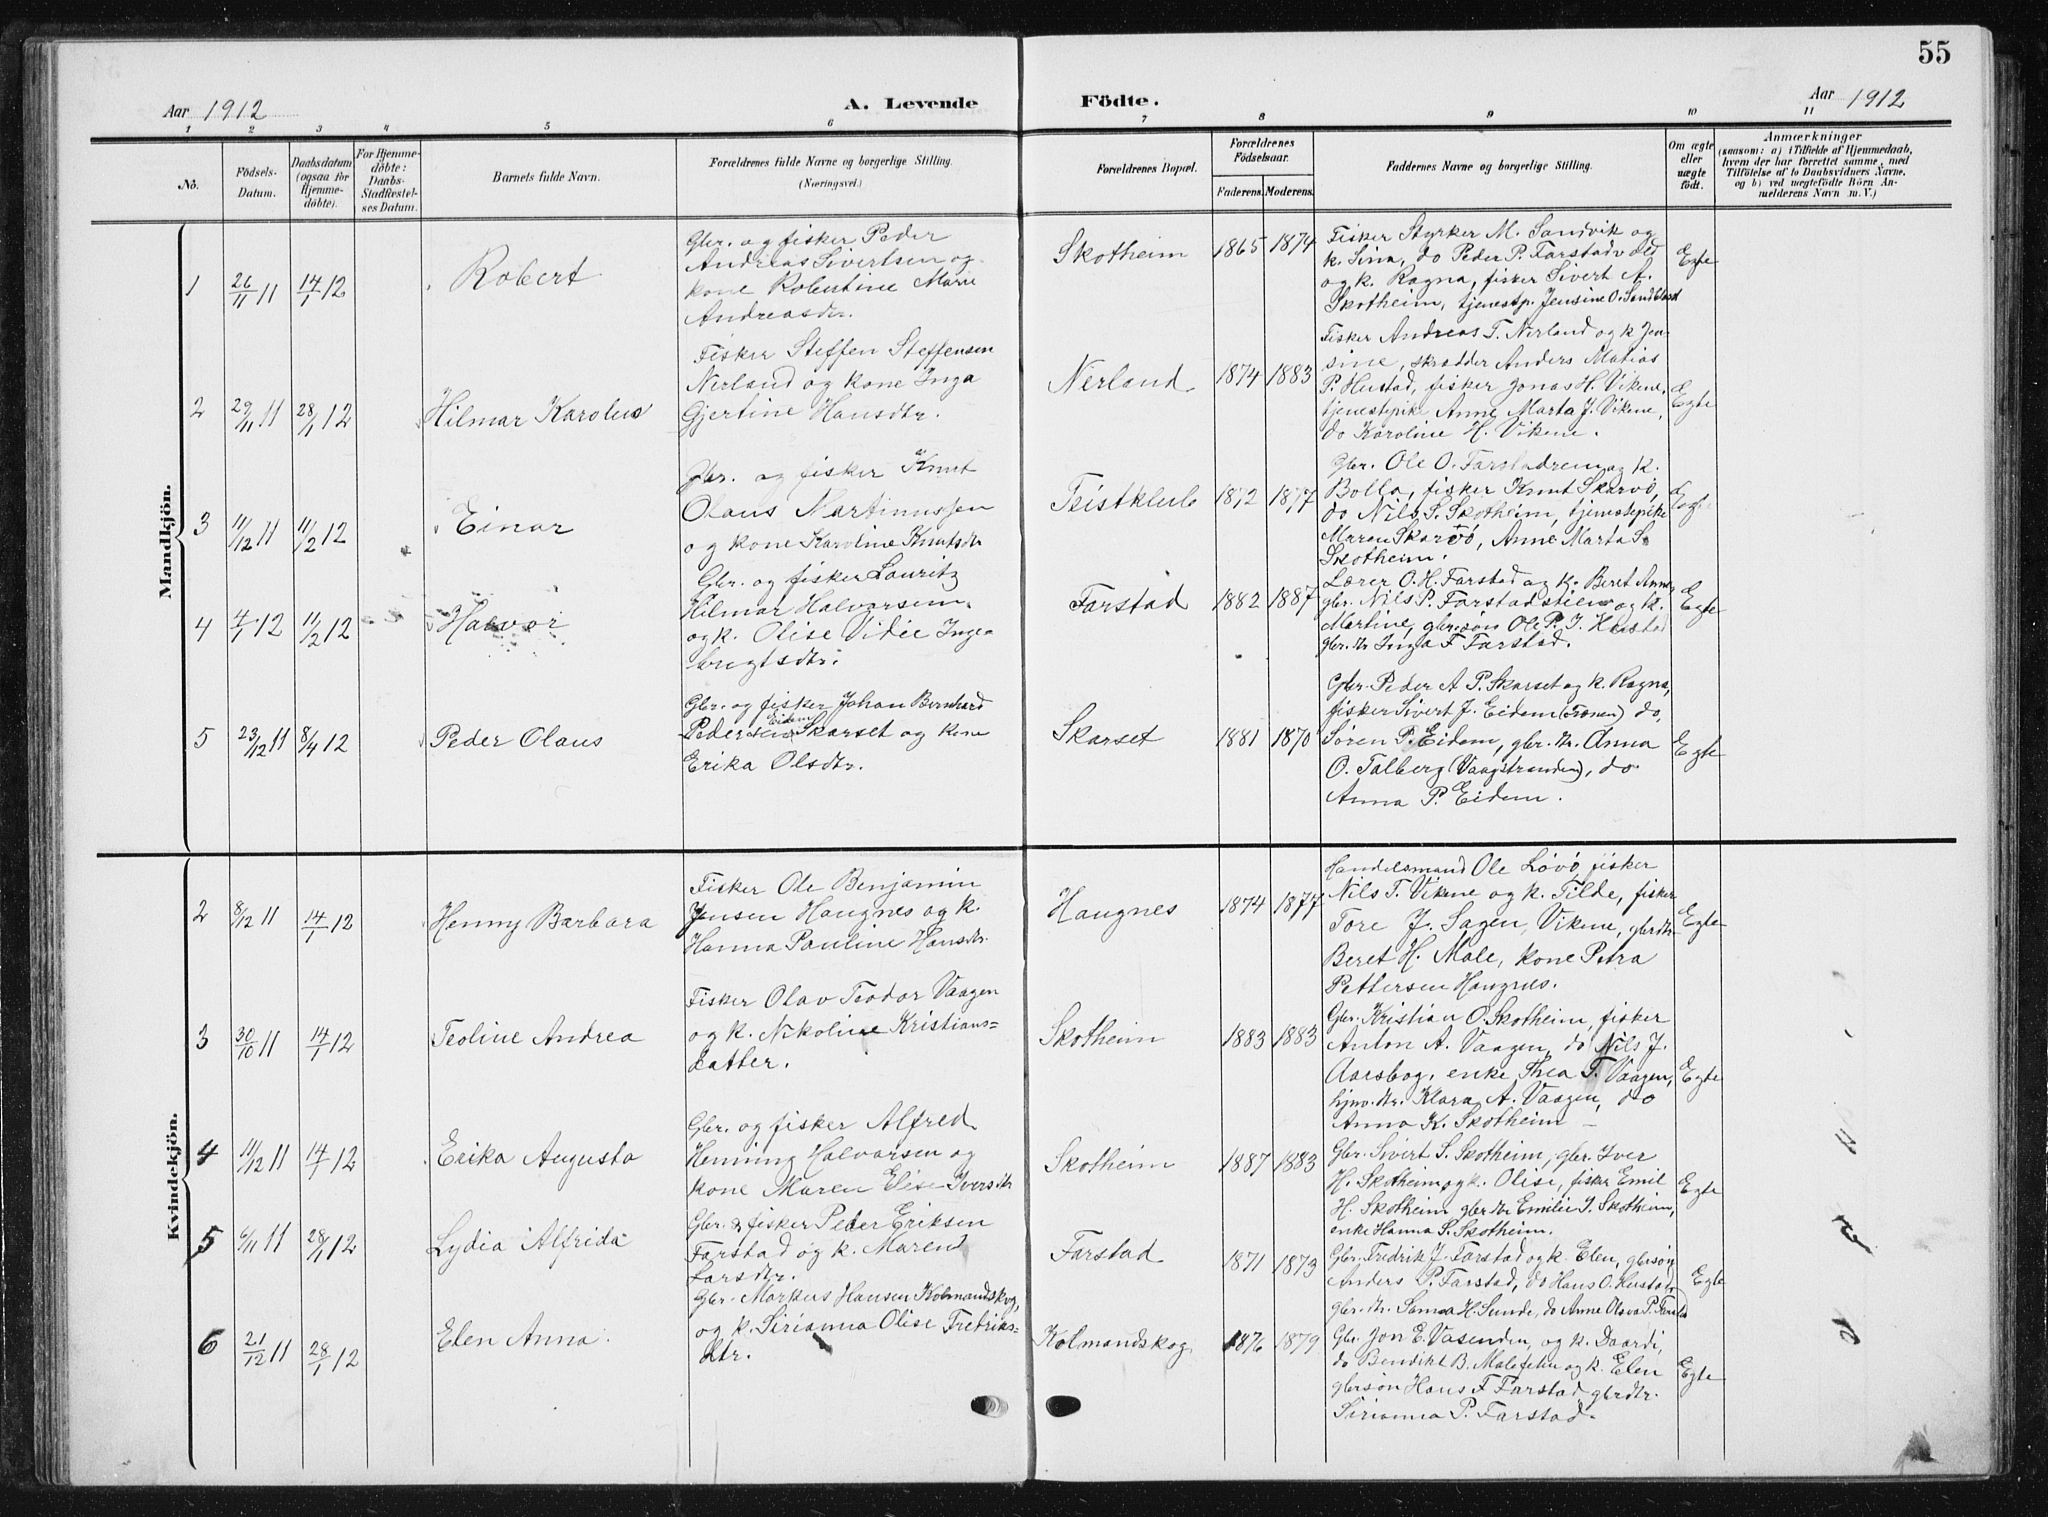 55
Aar 1912
A. Levende
Födte.
Aar 1912
1 2 3 4 5 6 7 8 9 10 11
No.
Födsels-
Datum.
Daabsdatum
(ogsaa for
Hjemme-
döbte).
For Hjemme-
döbte:
Daabs-
Stadfæstel-
ses Datum.
Barnets fulde Navn.
Forældrenes fulde Navne og borgerlige Stilling.
(Næringsvei.)
Forældrenes Bopæl.
Forældrenes
Födselsaar.
Faderens. Moderens.
Faddernes Navne og borgerlige Stilling.
Om ægte
eller
uægte
födt.
Anmærkninger
(saasom: a) i Tilfælde af Hjemmedaab,
hvem der har forrettet samme, med
Tilföielse af to Daabsvidners Navne,
og b) ved uægtefödte Börn An-
melderens Navn m. V.)
Mandkjön.
1 26/11 11 14/1 12 Robert
Gbr. og fisker Peder
Andreas Sivertsen og
kone Robertine Marie
Andreasdtr.
Skotheim 1865 1874
Fisker Styrker M. Sandvik og
k. Sina, do Peder P. Farstadvold
og k. Ragna, fisker Sivert A.
Skotheim, tjenestp. Jensine O. Sandblaast
Egte
2 29/11 11 28/1 12 Hilmar Karolus
Fisker Steffen Steffensen
Nerland og kone Inga
Gjertine Hansdtr.
Nerland 1874 1883
Fisker Andreas T. Nerland og k Jen-
sine, skrædder Anders Matias
P. Hustad, fisker Jonas H. Vikene,
tjenestepike Anne Marta J. Vikene,
do Karoline H. Vikene.
Egte
3 11/12 11 11/2 12 Einar
Gbr. og fisker Knut
Olaus Martinussen
og kone Karoline Knutsdtr
1872 1877
Gbr. Ole O. Farstadrem og k.
Bolla, fisker Knut Skarvø,
do Nils S. Skotheim, tjenestepike
Maren Skarvø, Anne Marta S.
Skotheim.
Egte
4 4/1 12 11/2 12 Halvor
Gbr. og fisker Lauritz
Hilmar Halvorsen
og k. Olise Vidie Inge-
brigtsdtr.
Farstad 1882 1887
Lærer O. H. Farstad og k. Beret Anne,
gbr. Nils P. Farstadstien og k.
Martine, gbr.søn Ole P. J. Hustad
gbr. dtr Inga F Farstad.
Egte
5 23/12 11 8/4 12 Peder Olaus
Gbr. og fisker Johan Bernhard
Pedersen Eidem Skarset og kone
Erika Olsdtr.
Skarset 1881 1870
Gbr. Peder A P. Skarset og k. Ragna,
fisker Sivert J. Eidem (Trønen) do,
Søren P. Eidem, gbr. dtr. Anna
O. Talberg (Vaagstranden), do
Anna P. Eidem.
Egte
Kvindekjön.
2 8/12 11 14/1 12 Henny Barbara
Fisker Ole Benjamin
Jensen Haugnes og k.
Hanna Pauline Hansdtr.
Haugnes 1874 1877
Handelsmand Ole Løvø, fisker
Nils T. Vikene og k. Tilde, fisker
Tore J. Sagen, Vikene, gbrdtr
Beret H. Male, kone Petra
Pettersen Haugnes.
Egte
3 30/10 11 14/1 12 Teoline Andrea
Fisker Olav Teodor Vaagen
og k. Nikoline Kristians-
datter.
Skotheim 1883 1883
Gbr. Kristian O. Skotheim, fisker
Anton A. Vaagen, do Nils J.
Aarsbog, enke Thea T. Vaagen,
hjmv. dtr. Klara A. Vaagen, do
Anna K. Skotheim
Egte
4 11/12 11 14/1 12 Erika Augusta
Gbr. og fisker Alfred
Henning Halvorsen og
kone Maren Elise Iversdtr
Skotheim 1887 1883
Gbr. Sivert S. Skotheim, gbr. Iver
H. Skotheim og k. Olise, fisker Emil
H. Skotheim gbr dtr Emilie I. Skotheim,
enke Hanna S. Skotheim.
Egte
5 6/11 11 28/1 12 Lydia Alfrida
Gbr. & fisker Peder Eriksen
Farstad og k. Maren
Larsdtr.
Farstad 1871 1873
Gbr. Fredrik J. Farstad og k. Elen, gbrsøn
Anders P. Farstad, do Hans O. Hustad,
gbr. dtr. Sanna H. Sunde, do Anne Olava P. Farstad
Egte
6 21/12 11 28/1 12 Elen Anna.
Gbr. Markus Hansen Kolmandskog,
og k. Sirianna Olise Fredriks-
dtr.
Kolmandskog 1876 1879
Gbr. Jon E. Vasenden, og k. Daardi,
do Bendikt B. Malefeten og k. Elen
gbrsøn Hans F Farstad gbrdtr.
Sirianna P. Farstad.
Egte